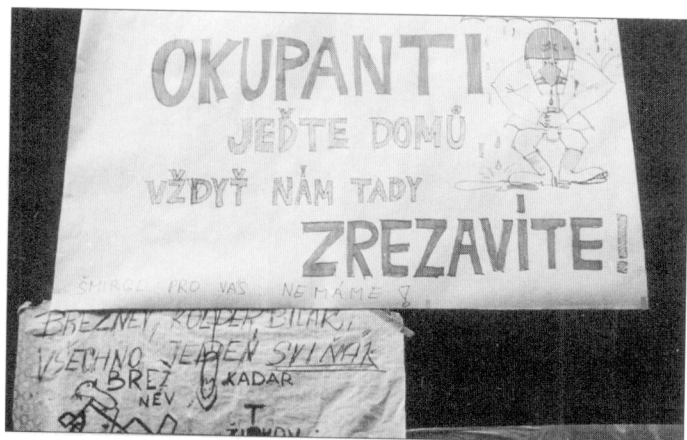 OKUPANTI
JEĎTE DOMŮ
VŽDYŤ NÁM TADY
ZREZAVÍTE!
ŠMIRGL PRO VÁS NEMÁME!
BREŽNEV, KOLDER, BILAK,
VŠECHNO JEDEN SVIŇÁK
BREŽ
NĚV
KADAR